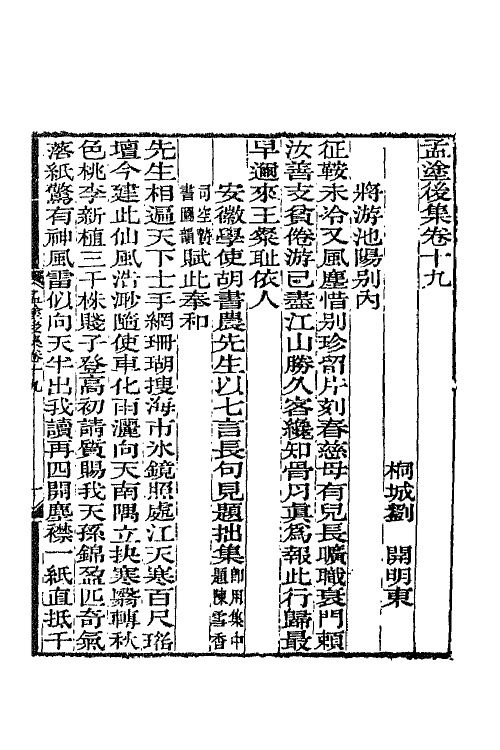 孟塗後集卷十九
桐城劉　開明東
將游池陽別內
征鞍未洽又風塵惜別珍留片刻春慈母有兒長曠職衰門賴
汝善支貧倦游已盡江山勝久客纔知骨肉眞爲報此行歸最
早邇來王粲恥依人
安徽學使胡書農先生以七言長句見題拙集卽用集中題陳雪香
司空勢書圖韻賦此奉和
先生相遍天下士手網珊瑚搜海市氷鏡照處江天寒百尺瑤
壇今建此仙風浩渺隨使車化雨灑向天南隅立抉寒翳轉秋
色桃李新植三千株賤子登高初請質賜我天孫錦盈匹奇氣
落紙驚有神風雷似向天半出我讀再四開塵襟一紙直抵千
孟塗後集卷十九
一